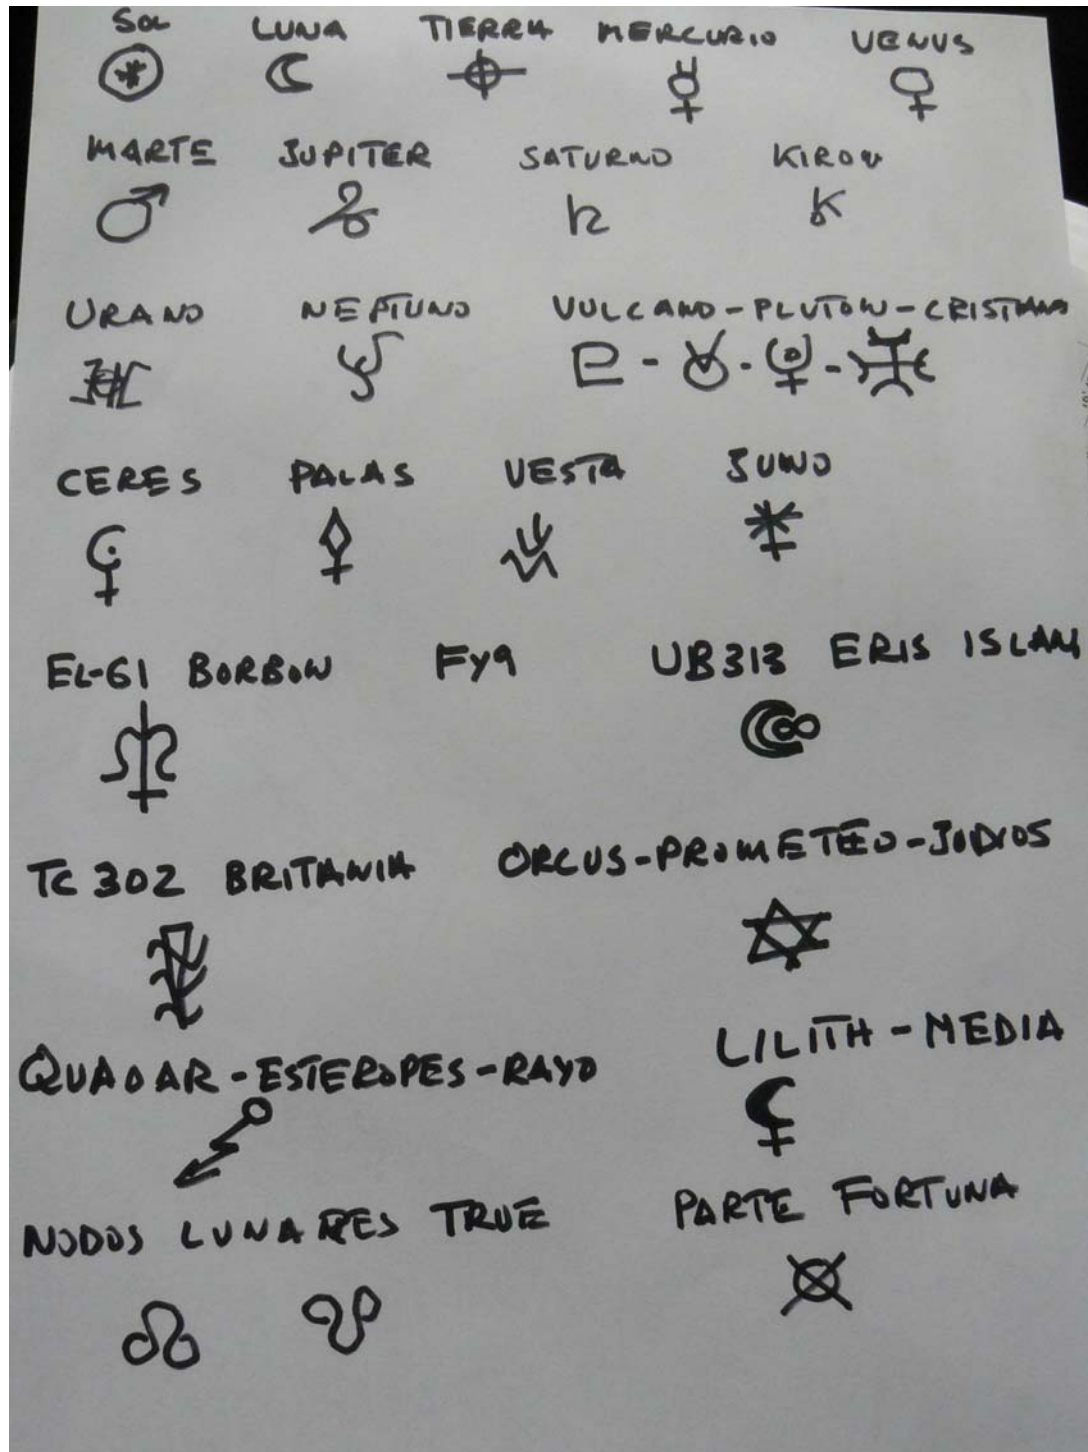 SOL LUNA TIERRA MERCURIO VENUS
MARTE JUPITER SATURNO KIRON
URANO NEPTUNO VULCANO-PLUTON-CRISTIANO
CERES PALAS VESTA JUNO
EL-61 BORBON Fy9 UB313 ERIS ISLAM
TC 302 BRITANIA ORCUS-PROMETEO-JUDIOS
QUAOAR-ESTEROPES-RAYO LILITH-MEDIA
NODOS LUNARES TRUE PARTE FORTUNA